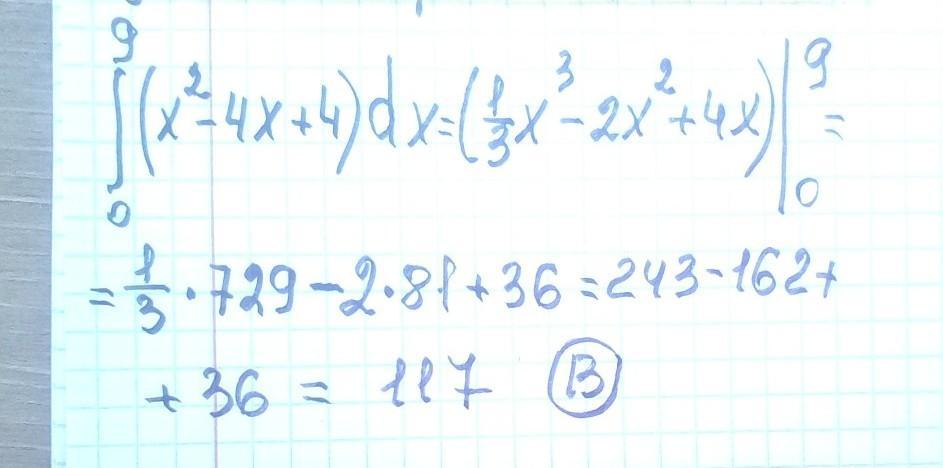 ∫₀⁹ (x² - 4x + 4) dx = (1/3 x³ - 2x² + 4x) |₀⁹ =
= 1/3 · 729 - 2 · 81 + 36 = 243 - 162 +
+ 36 = 117 (B)